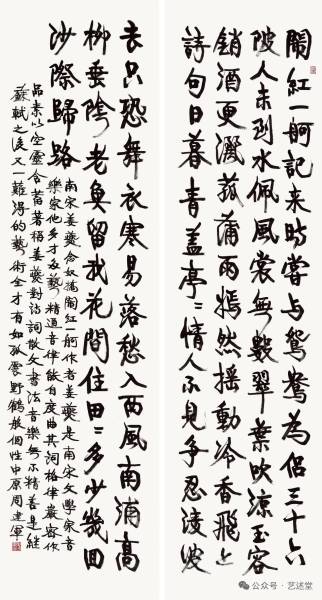 鬧紅一舸記来時嘗与鴛鴦為侶三十六
陂人未到水佩風裳無數翠葉吹涼玉容
銷酒更灑菰蒲雨嫣然摇動冷香飛上
詩句日暮青盖亭〻情人不見争忍淩波
去只恐舞衣寒易落愁入西風南浦高
柳垂陰老魚留我花間住田〻多少幾回
沙際歸路
南宋姜夔念奴嬌鬧紅一舸作者姜夔是南宋文學家音
樂家他多才多藝精通音律能自度曲其詞格律嚴密作
品素以空靈含蓄著稱姜夔對詩詞散文書法音樂無不精善是继
蘇軾之後又一難得的藝術全才有如孤雲野鶴般個性中原周建軍
公众号 · 艺述堂